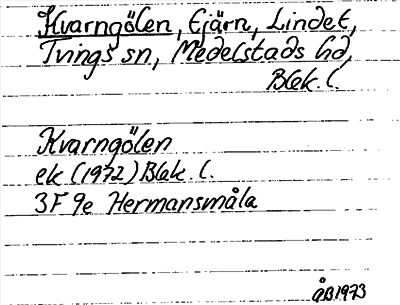 Kvarngölen, tjärn, Lindet,
Tvings sn, Medelstads hd,
Blek. l.
Kvarngölen
ek (1972) Blek. l.
3F 9e Hermansmåla
ÅB 1973